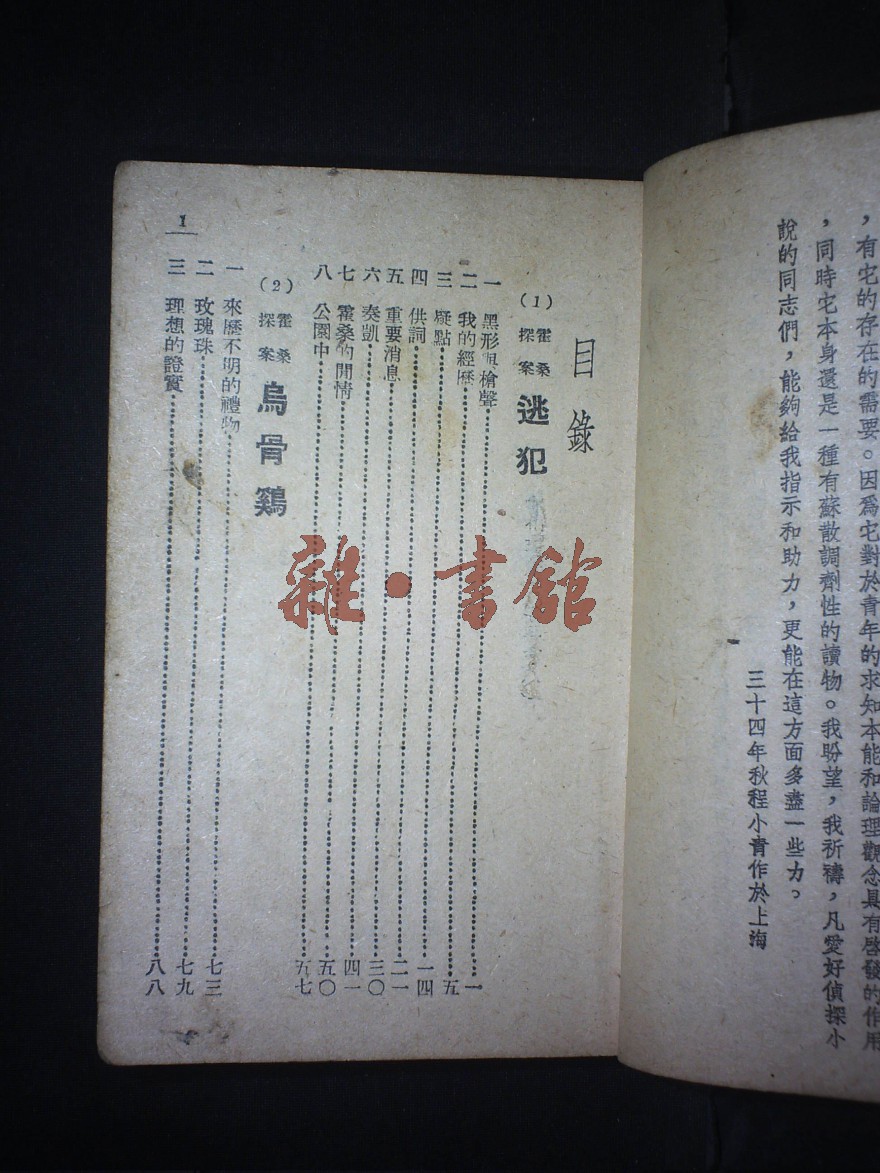 ，有它的存在的需要。因爲它對於青年的求知本能和論理觀念具有啓發的作用
，同時它本身還是一種有蘇散調劑性的讀物。我盼望，我祈禱，凡愛好偵探小
說的同志們，能夠給我指示和助力，更能在這方面多盡一些力。
三十四年秋程小青作於上海
目錄
(1) 霍桑探案 逃犯
一 黑形與槍聲 一
二 我的經歷 五
三 疑點 一四
四 供詞 二一
五 重要消息 三〇
六 奏凱 四一
七 霍桑的閒情 五〇
八 公園中 五七
(2) 霍桑探案 烏骨鷄
一 來歷不明的禮物 七三
二 玫瑰珠 七九
三 理想的證實 八八
1
雜·書館